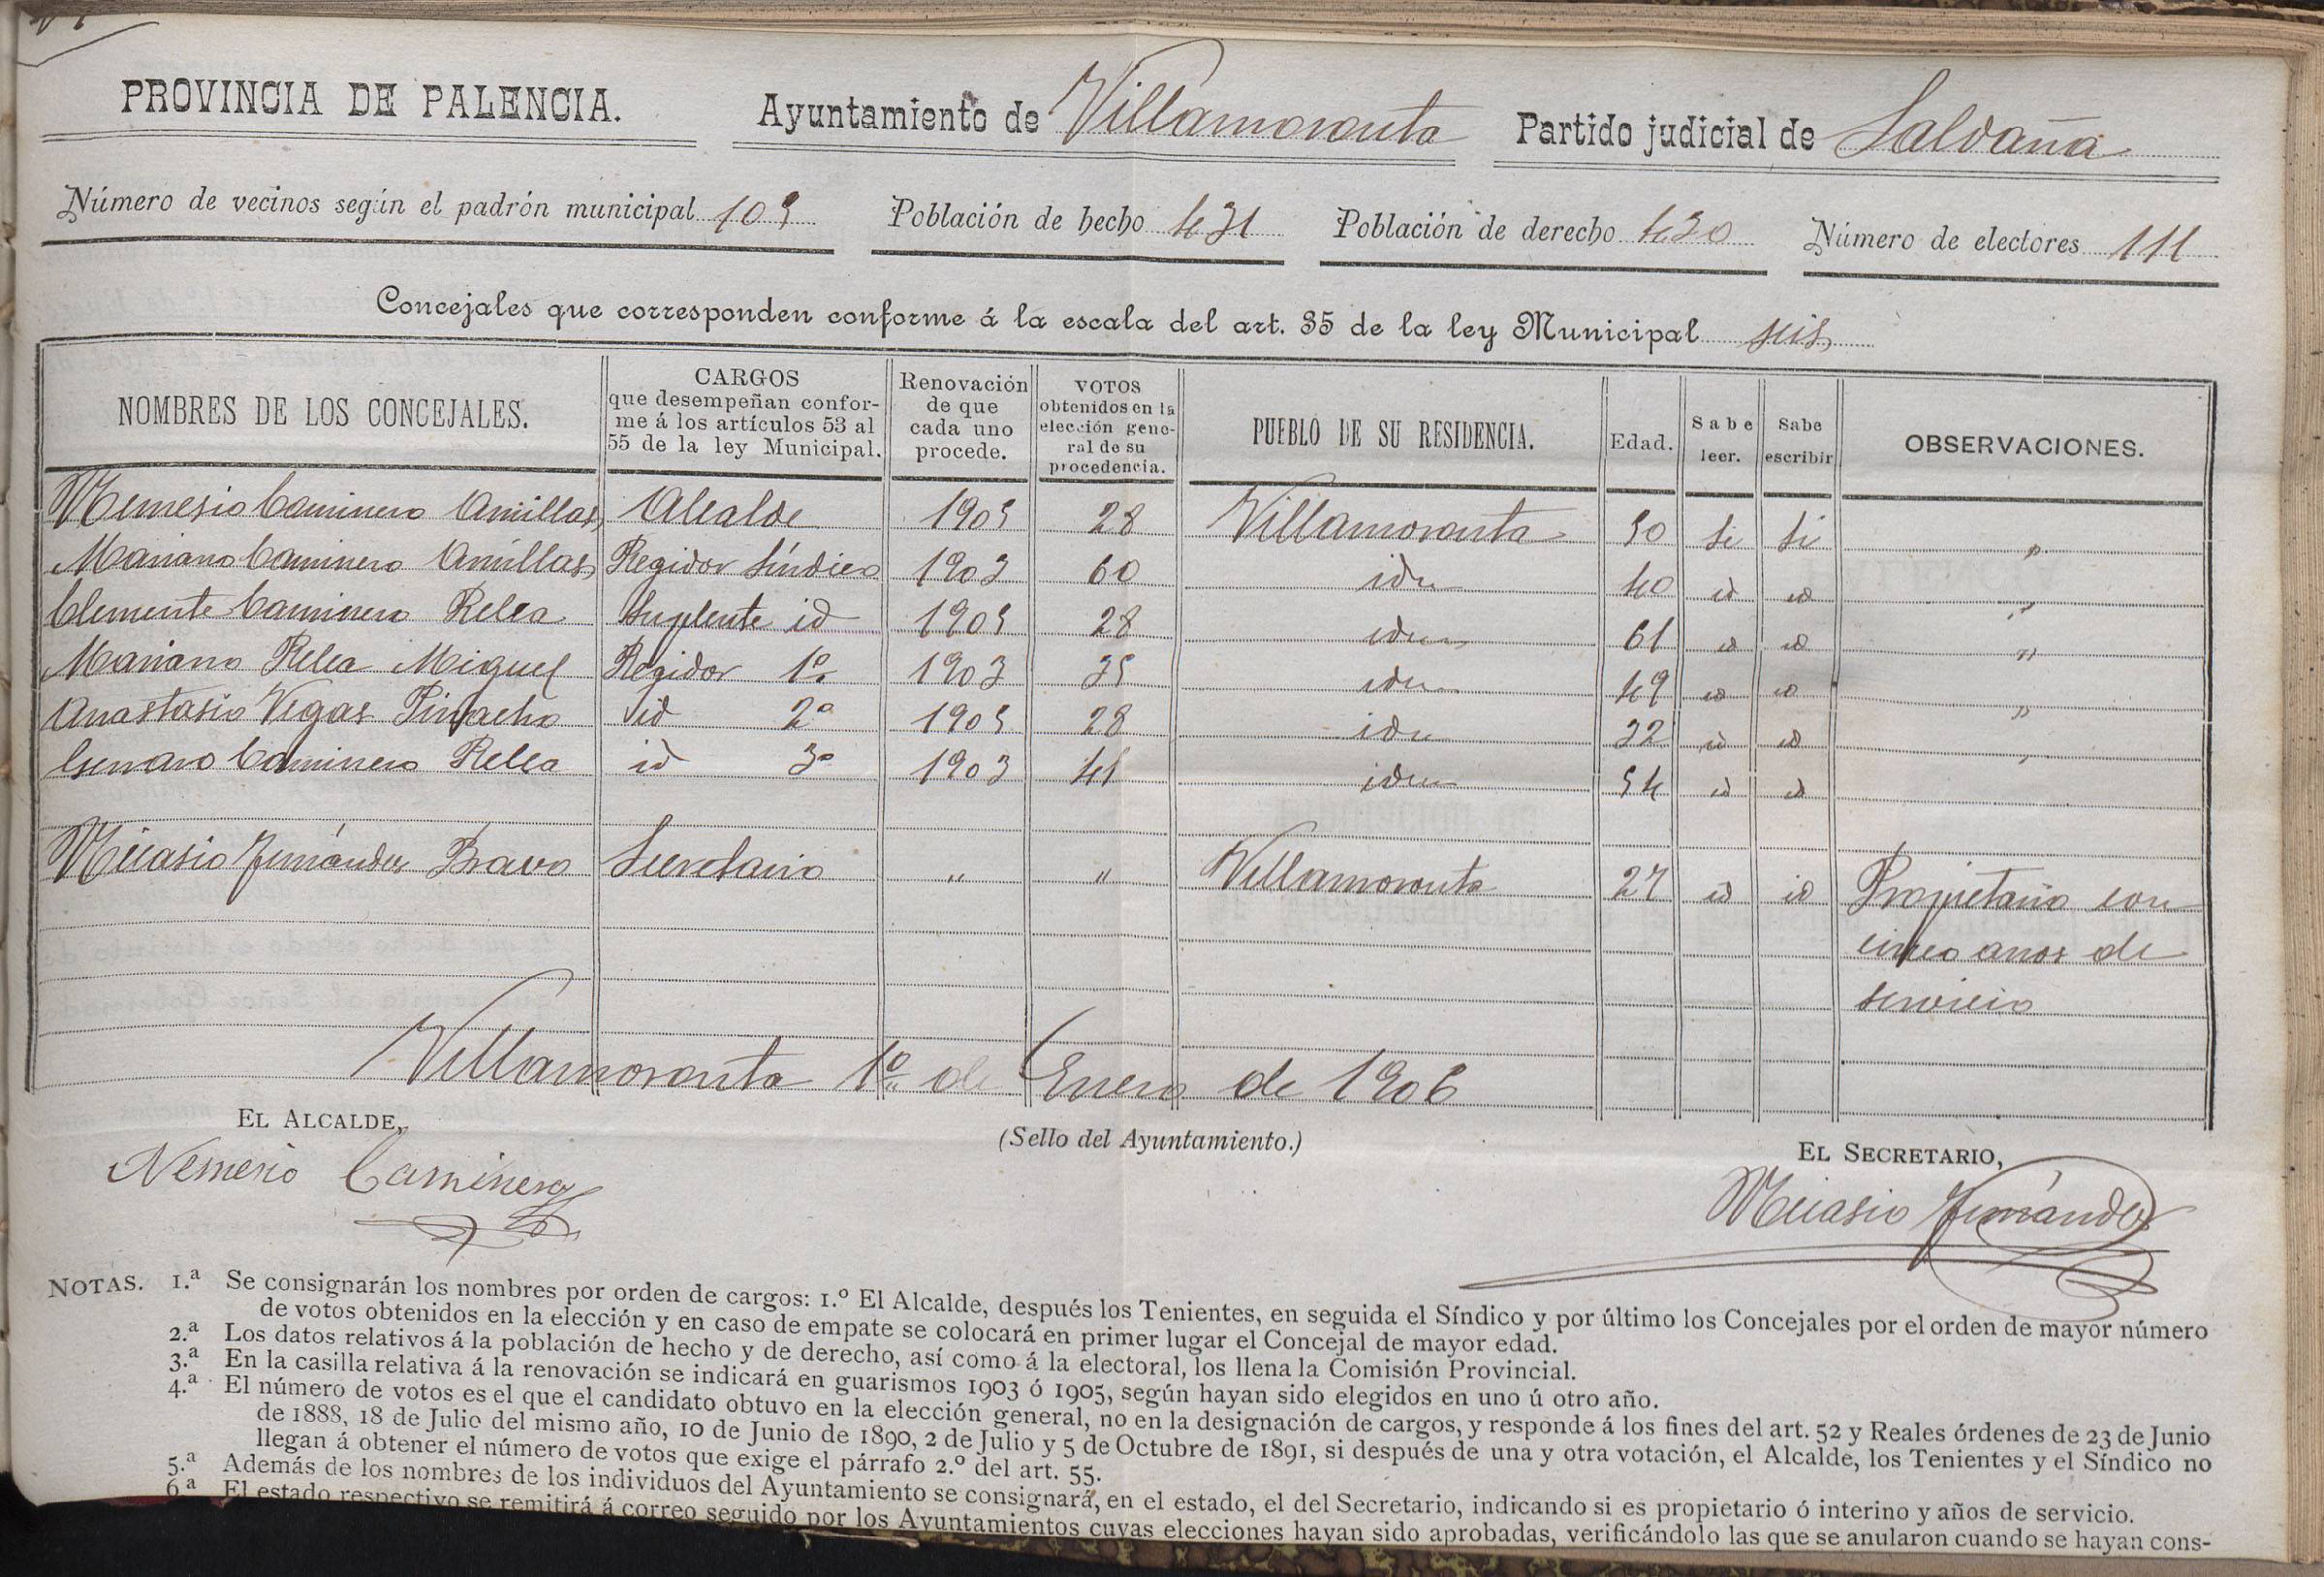 PROVINCIA DE PALENCIA. Ayuntamiento de Villamoronta Partido judicial de Saldaña
Número de vecinos según el padrón municipal 105 Población de hecho 431 Población de derecho 430 Número de electores 111
Concejales que corresponden conforme á la escala del art. 35 de la ley Municipal seis
NOMBRES DE LOS CONCEJALES. CARGOS que desempeñan conforme á los artículos 53 al 55 de la ley Municipal. Renovación de que cada uno procede. VOTOS obtenidos en la elección general de su procedencia. PUEBLO DE SU RESIDENCIA. Edad. Sabe leer. Sabe escribir OBSERVACIONES.
Nemesio Caminero Amillas Alcalde 1905 28 Villamoronta 50 si si "
Mariano Caminero Amillas Regidor Síndico 1903 60 idm 40 id id "
Clemente Caminero Relea Suplente id 1905 28 idm 61 id id "
Mariano Relea Miguel Regidor 1º 1903 35 idm 49 id id "
Anastasio Vegas Pinacho id 2º 1905 28 idm 32 id id "
Genaro Caminero Relea id 3º 1903 41 idm 54 id id
Nicasio Fernández Bravo Secretario " " Villamoronta 27 id id Propietario con
cinco años de
servicio
Villamoronta 1º de Enero de 1906
EL ALCALDE,
(Sello del Ayuntamiento.)
EL SECRETARIO,
Nemesio Caminero
Nicasio Fernández
NOTAS. 1.ª Se consignarán los nombres por orden de cargos: 1.º El Alcalde, después los Tenientes, en seguida el Síndico y por último los Concejales por el orden de mayor número
de votos obtenidos en la elección y en caso de empate se colocará en primer lugar el Concejal de mayor edad.
2.ª Los datos relativos á la población de hecho y de derecho, así como á la electoral, los llena la Comisión Provincial.
3.ª En la casilla relativa á la renovación se indicará en guarismos 1903 ó 1905, según hayan sido elegidos en uno ú otro año.
4.ª El número de votos es el que el candidato obtuvo en la elección general, no en la designación de cargos, y responde á los fines del art. 52 y Reales órdenes de 23 de Junio
de 1888, 18 de Julio del mismo año, 10 de Junio de 1890, 2 de Julio y 5 de Octubre de 1891, si después de una y otra votación, el Alcalde, los Tenientes y el Síndico no
llegan á obtener el número de votos que exige el párrafo 2.º del art. 55.
5.ª Además de los nombres de los individuos del Ayuntamiento se consignará, en el estado, el del Secretario, indicando si es propietario ó interino y años de servicio.
6.ª El estado respectivo se remitirá á correo seguido por los Ayuntamientos cuyas elecciones hayan sido aprobadas, verificándolo las que se anularon cuando se hayan cons-